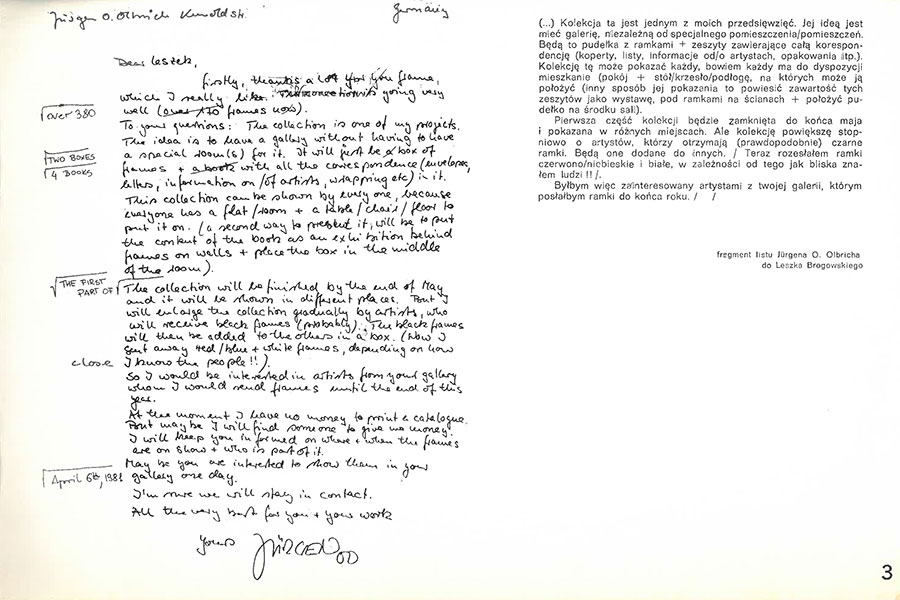 Jürgen O. Olbrich
Germany
Dear Leszek,
firstly, thanks a lot for you frame,
which I really like. The connection is going very
well (over 170 frames now).
over 380
To your questions: The collection is one of my projects.
The idea is to have a gallery without having to have
a special room(s) for it. It will just be a box of
TWO BOXES
4 BOOKS
frames + a book with all the correspondence (envelopes,
letters, information on/of artists, wrapping etc) in it.
This collection can be shown by every one, because
everyone has a flat/room + a table/chair/floor to
put it on. (a second way to present it, will be to put
the content of the book as an exhibition behind
frames on walls + place the box in the middle
of the room).
THE FIRST
PART OF
The collection will be finished by the end of May
and it will be shown in different places. But I
will enlarge the collection gradually by artists, who
will receive black frames (probably). The black frames
will then be added to the others in a box. (Now I
sent away red/blue + white frames, depending on how
close I know the people!!).
So I would be interested in artists from your gallery
whom I would send frames until the end of this
year.
At the moment I have no money to print a catalogue.
But maybe I will find someone to give me money.
I will keep you informed on where + when the frames
are on show + who is part of it.
May be you are interested to show them in your
gallery one day.
April 6th, 1981
I'm sure we will stay in contact.
All the very best for you + your work
Yours JÜRGEN OO
(...) Kolekcja ta jest jednym z moich przedsięwzięć. Jej ideą jest
mieć galerię, niezależną od specjalnego pomieszczenia/pomieszczeń.
Będą to pudełka z ramkami + zeszyty zawierające całą korespon-
dencję (koperty, listy, informacje od/o artystach, opakowania itp.).
Kolekcję tę może pokazać każdy, bowiem każdy ma do dyspozycji
mieszkanie (pokój + stół/krzesło/podłogę, na których może ją
położyć (inny sposób jej pokazania to powiesić zawartość tych
zeszytów jako wystawę, pod ramkami na ścianach + położyć pu-
dełko na środku sali).
Pierwsza część kolekcji będzie zamknięta do końca maja
i pokazana w różnych miejscach. Ale kolekcję powiększę stop-
niowo o artystów, którzy otrzymają (prawdopodobnie) czarne
ramki. Będą one dodane do innych. / Teraz rozesłałem ramki
czerwono/niebieskie i białe, w zależności od tego jak bliska zna-
łem ludzi !! /.
Byłbym więc zainteresowany artystami z twojej galerii, którym
posłałbym ramki do końca roku. / /
fragment listu Jürgena O. Olbricha
do Leszka Brogowskiego
3